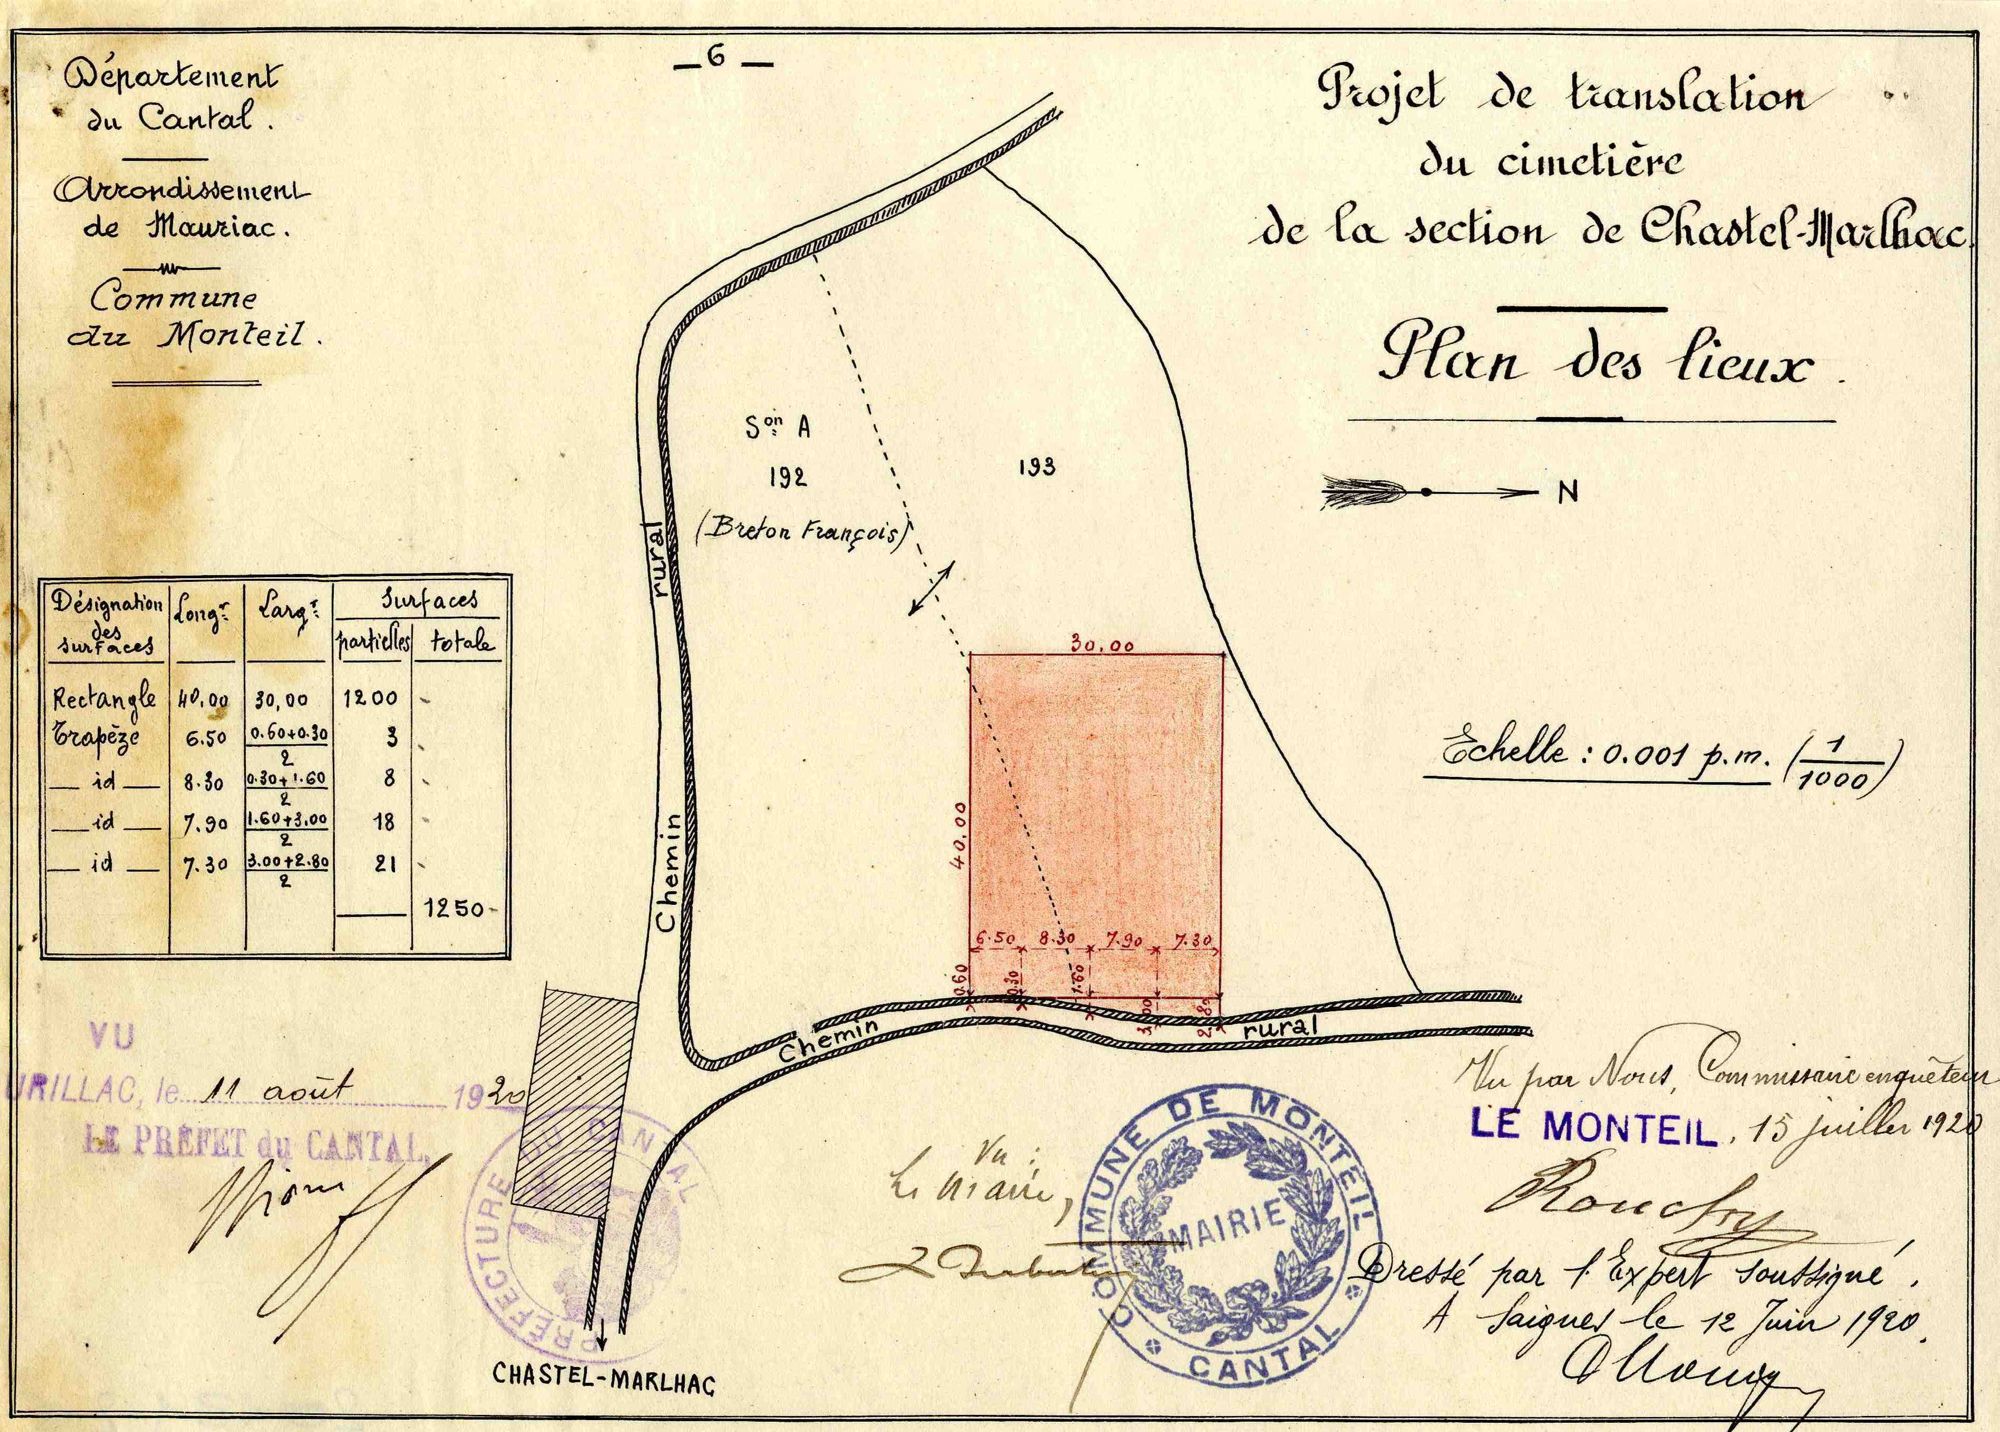 _6_
Département
du Cantal.
Arrondissement
de Mauriac.
Commune
du Monteil.
Projet de translation
du cimetière
de la section de Chastel-Marlhac
Plan des lieux.
N
Echelle : 0.001 p.m. (1/1000)
Son A
192
(Breton François)
193
Chemin rural
30.00
40.00
6.50 8.30 7.90 7.30
0.60 0.30 1.60 3.00 2.80
Chemin rural
CHASTEL-MARLHAC
Désignation des surfaces Longr Largr Surfaces
partielles totale
Rectangle 40.00 30,00 1200 -
Trapèze 6.50 0.60+0.30/2 3 -
— id — 8.30 0.30+1.60/2 8 -
— id — 7.90 1.60+3.00/2 18 -
— id — 7.30 3.00+2.80/2 21 -
1250-
VU
URILLAC, le 11 août 1920
LE PRÉFET du CANTAL,
PRÉFECTURE DU CANTAL
Vu :
Le Maire,
COMMUNE DE MONTEIL
MAIRIE
CANTAL
Vu par Nous, Commissaire enquêteur
LE MONTEIL, 15 juillet 1920
Dressé par l'Expert soussigné.
A Saignes le 12 Juin 1920.